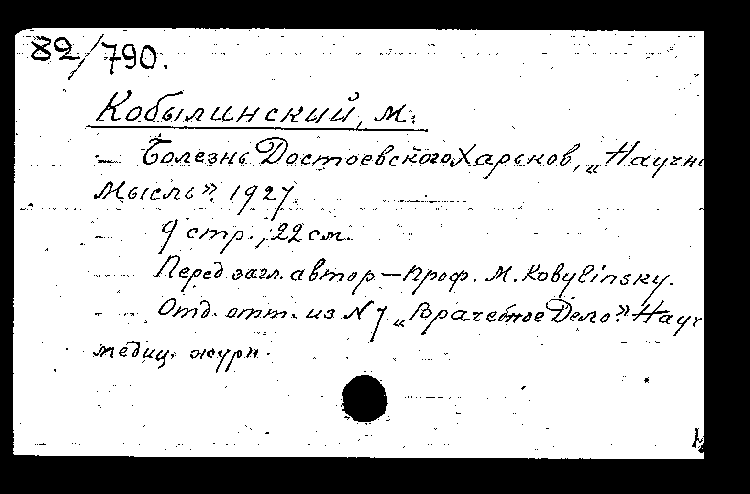 82/790.
Кобылинский, М.
— Болезнь Достоевского Харьков, „Научн
Мысль". 1927.
9 стр., 22 см.
Перед загл. автор — Проф. M. Kobylinsky.
Отд. отт. из № 7 „Врачебное Дело". Науч
медиц. журн.